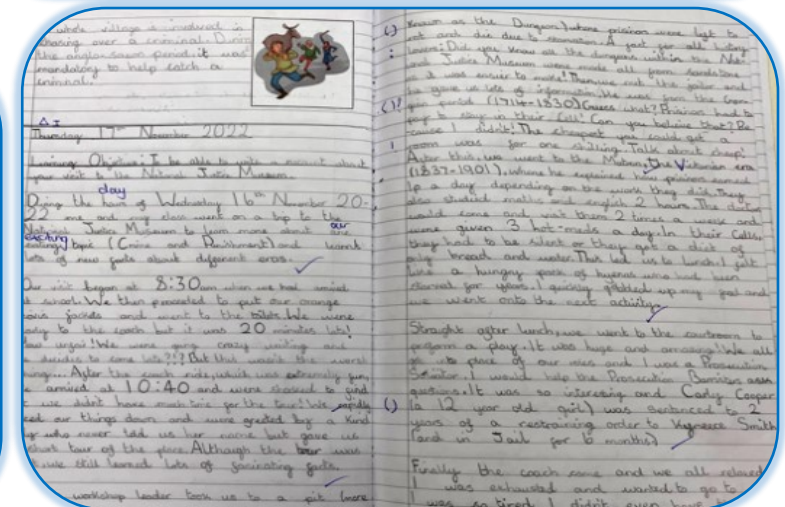 whole village is involved in
chasing over a criminal. During
the anglo-saxon period, it was
mandatory to help catch a
criminal.
Thursday 17th November 2022
Learning Objective: To be able to write a recount about
your visit to the National Justice Museum.
day
During the hours of Wednesday 16th November 20-
22 me and my class went on a trip to the
National Justice Museum to learn more about our
exciting topic (Crime and Punishment) and learnt
lots of new facts about different eras.
Our visit began at 8:30am when we had arrived
at school. We then proceeded to put our orange
jackets and went to the toilets. We were
ready to the coach but it was 20 minutes late!
How unfair! We were going crazy waiting and
decides to come late?!? But that wasn't the worst
thing... After the coach ride, which was extremely fun,
we arrived at 10:40 and were shocked to find
we didn't have much time for the tour! We rapidly
our things down and were greeted by a kind
who never told us her name but gave us
short tour of the place. Although the tour was
we still learned lots of facinating facts.
workshop leader took us to a pit (more
known as the Dungeon) where prisoners were left to
rot and die due to starvation. A fact for all history
lovers: Did you know all the dungeons within the National
Justice Museum were made all from sandstone
as it was easier to make! Then, we met the jailor and
he gave us lots of information. He was from the Geor-
gian period (1714-1830) Guess what? Prisoners had to
pay to stay in their Cell! Can you believe that? Be-
cause I didn't! The cheapest you could get a
room was for one shilling. Talk about cheap!
After this, we went to the Matron, the Victorian era
(1837-1901), where he explained how prisoners earned
1p a day depending on the work they did. They
also studied maths and english 2 hours. The doctor
would come and visit them 2 times a week and
were given 3 hot-meals a day. In their Cells,
they had to be silent or they got a diet of
only bread and water. This led us to lunch. I felt
like a hungry pack of hyenas who had been
starved for years. I quickly gobbled up my food and
we went onto the next activity.
Straight after lunch, we went to the courtroom to
perform a play. It was huge and amazing! We all
got into place of our roles and I was a Prosecution
Solicitor. I would help the Prosecution Barrister ask
questions. It was so interesting and Carly Cooper
(a 12 year old girl) was sentenced to 2
years of a restraining order to Smith
(and in Jail for 6 months)
Finally the coach came and we all relaxed
I was exhausted and wanted to go to
I was so tired I didn't even have